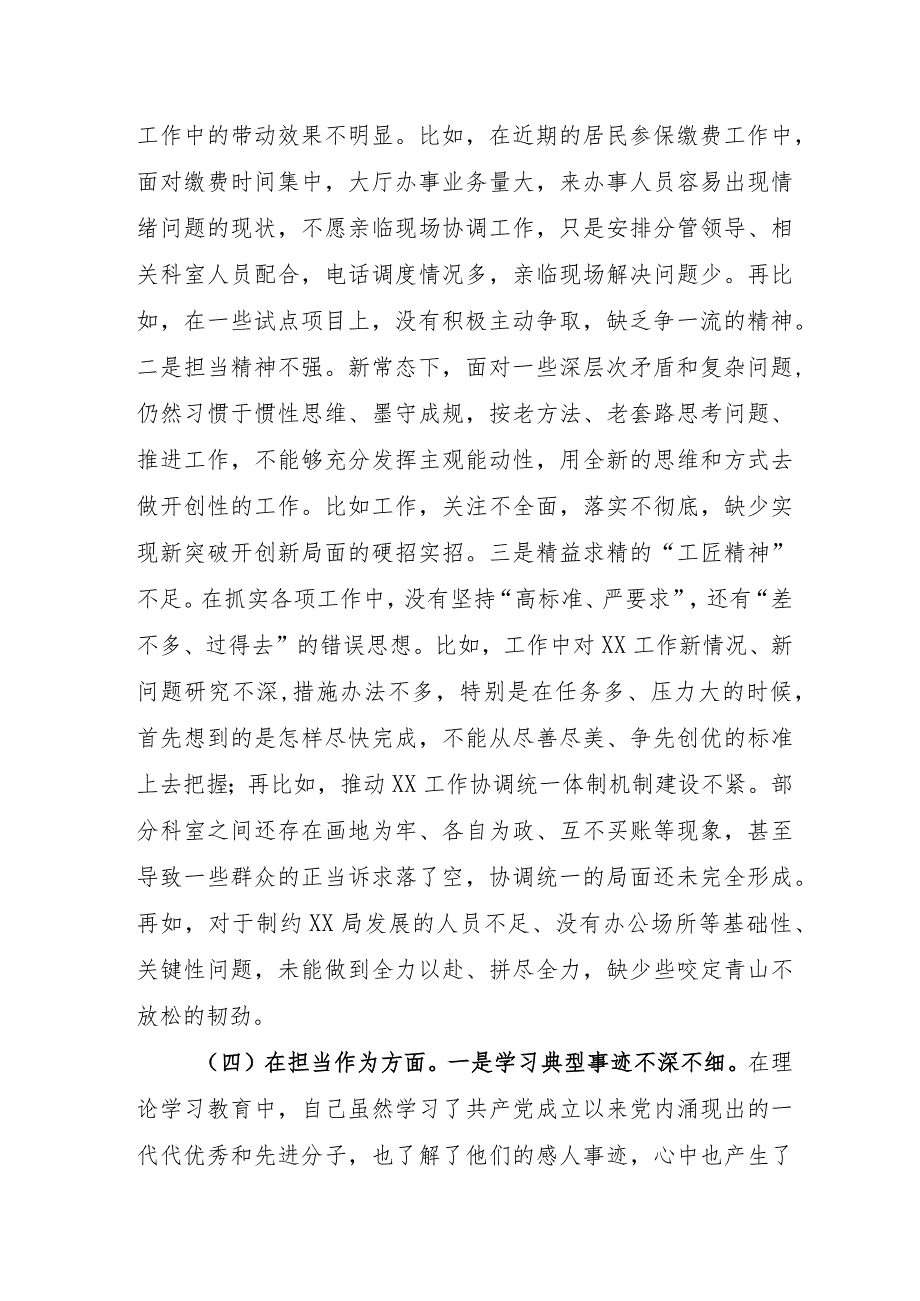 工作中的带动效果不明显。比如，在近期的居民参保缴费工作中，
面对缴费时间集中，大厅办事业务量大，来办事人员容易出现情
绪问题的现状，不愿亲临现场协调工作，只是安排分管领导、相
关科室人员配合，电话调度情况多，亲临现场解决问题少。再比
如，在一些试点项目上，没有积极主动争取，缺乏争一流的精神。
二是担当精神不强。新常态下，面对一些深层次矛盾和复杂问题，
仍然习惯于惯性思维、墨守成规，按老方法、老套路思考问题、
推进工作，不能够充分发挥主观能动性，用全新的思维和方式去
做开创性的工作。比如工作，关注不全面，落实不彻底，缺少实
现新突破开创新局面的硬招实招。三是精益求精的“工匠精神”
不足。在抓实各项工作中，没有坚持“高标准、严要求”，还有“差
不多、过得去”的错误思想。比如，工作中对XX工作新情况、新
问题研究不深,措施办法不多，特别是在任务多、压力大的时候，
首先想到的是怎样尽快完成，不能从尽善尽美、争先创优的标准
上去把握；再比如，推动XX工作协调统一体制机制建设不紧。部
分科室之间还存在画地为牢、各自为政、互不买账等现象，甚至
导致一些群众的正当诉求落了空，协调统一的局面还未完全形成。
再如，对于制约XX局发展的人员不足、没有办公场所等基础性、
关键性问题，未能做到全力以赴、拼尽全力，缺少些咬定青山不
放松的韧劲。
（四）在担当作为方面。一是学习典型事迹不深不细。在理
论学习教育中，自己虽然学习了共产党成立以来党内涌现出的一
代代优秀和先进分子，也了解了他们的感人事迹，心中也产生了